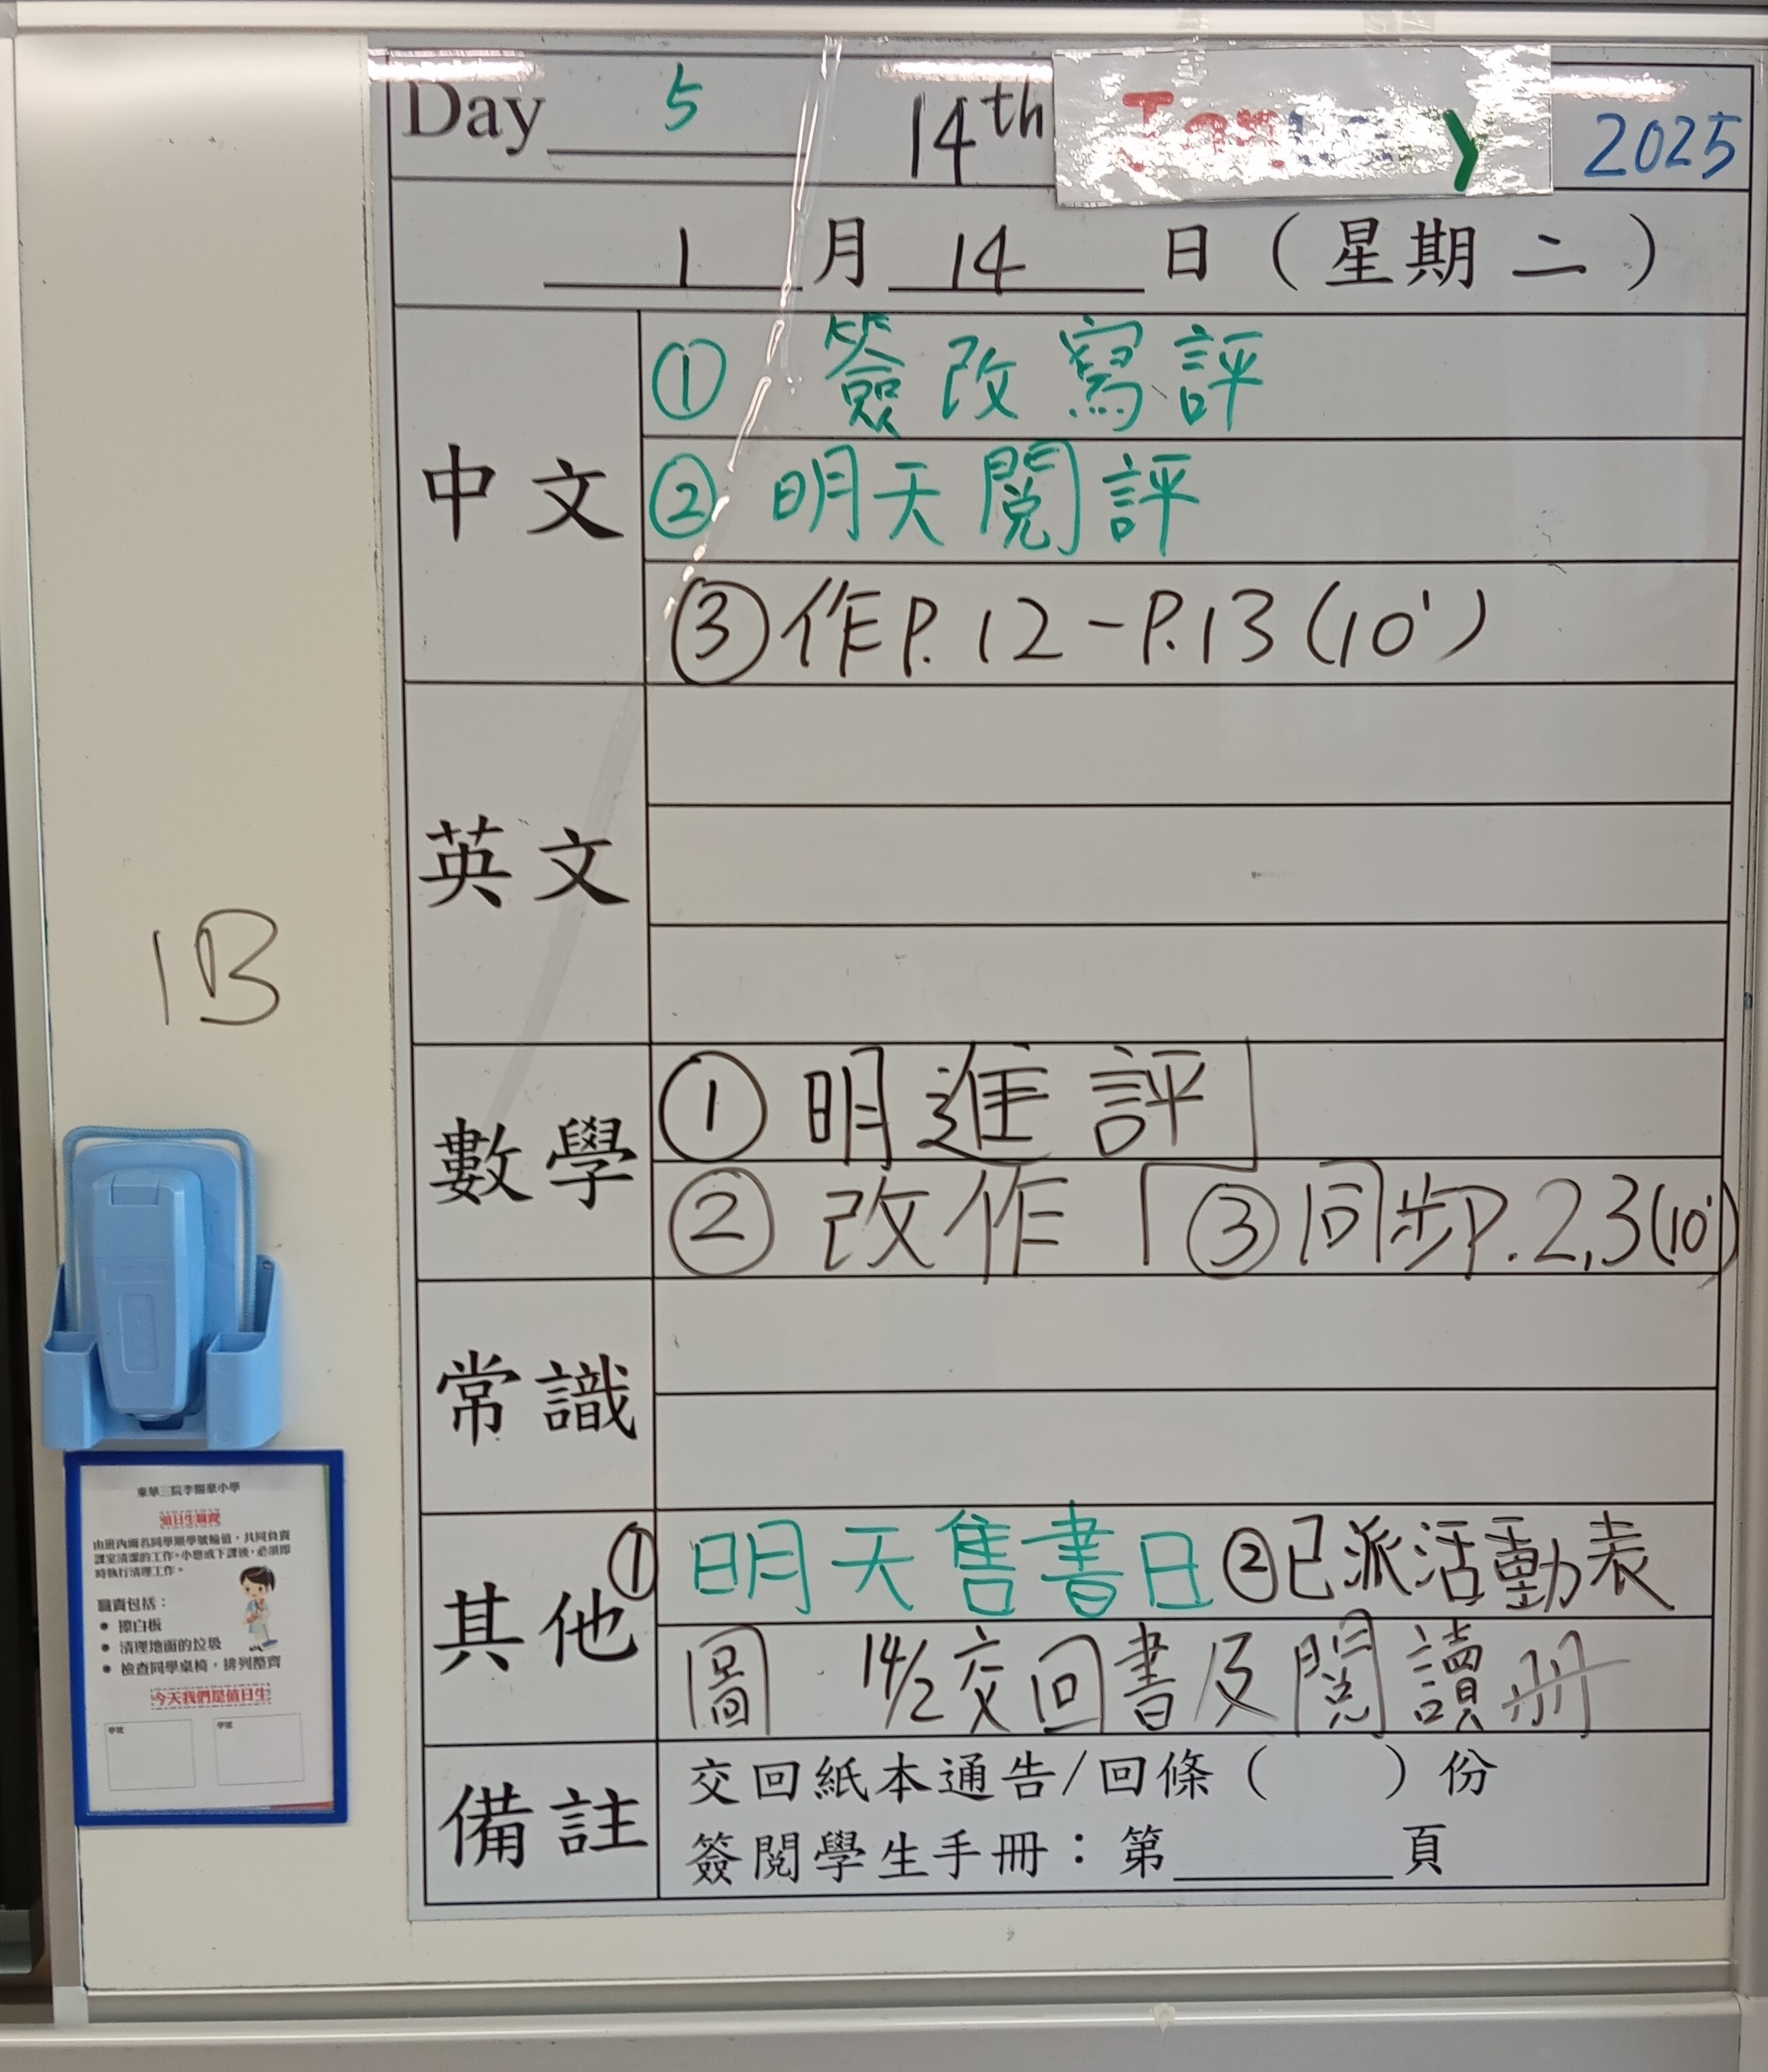 Day 5 14th January 2025
1 月 14 日 (星期 二)
中文
① 簽改寫評
② 明天閱評
③ 作P.12-P.13(10')
英文
數學
① 明進評
② 改作 ③ 同步P.2,3(10')
常識
其他
① 明天售書日 ② 已派活動表
圖 14/2交回書及閱讀冊
備註
交回紙本通告/回條( )份
簽閱學生手冊:第____頁
1B
值日生職責
由班內兩名同學順學號輪值,共同負責
課室清潔的工作。小息或下課後,必須即
時執行清理工作。
職責包括:
● 擦白板
● 清理地面的垃圾
● 檢查同學桌椅,排列整齊
今天我們是值日生
學號 學號